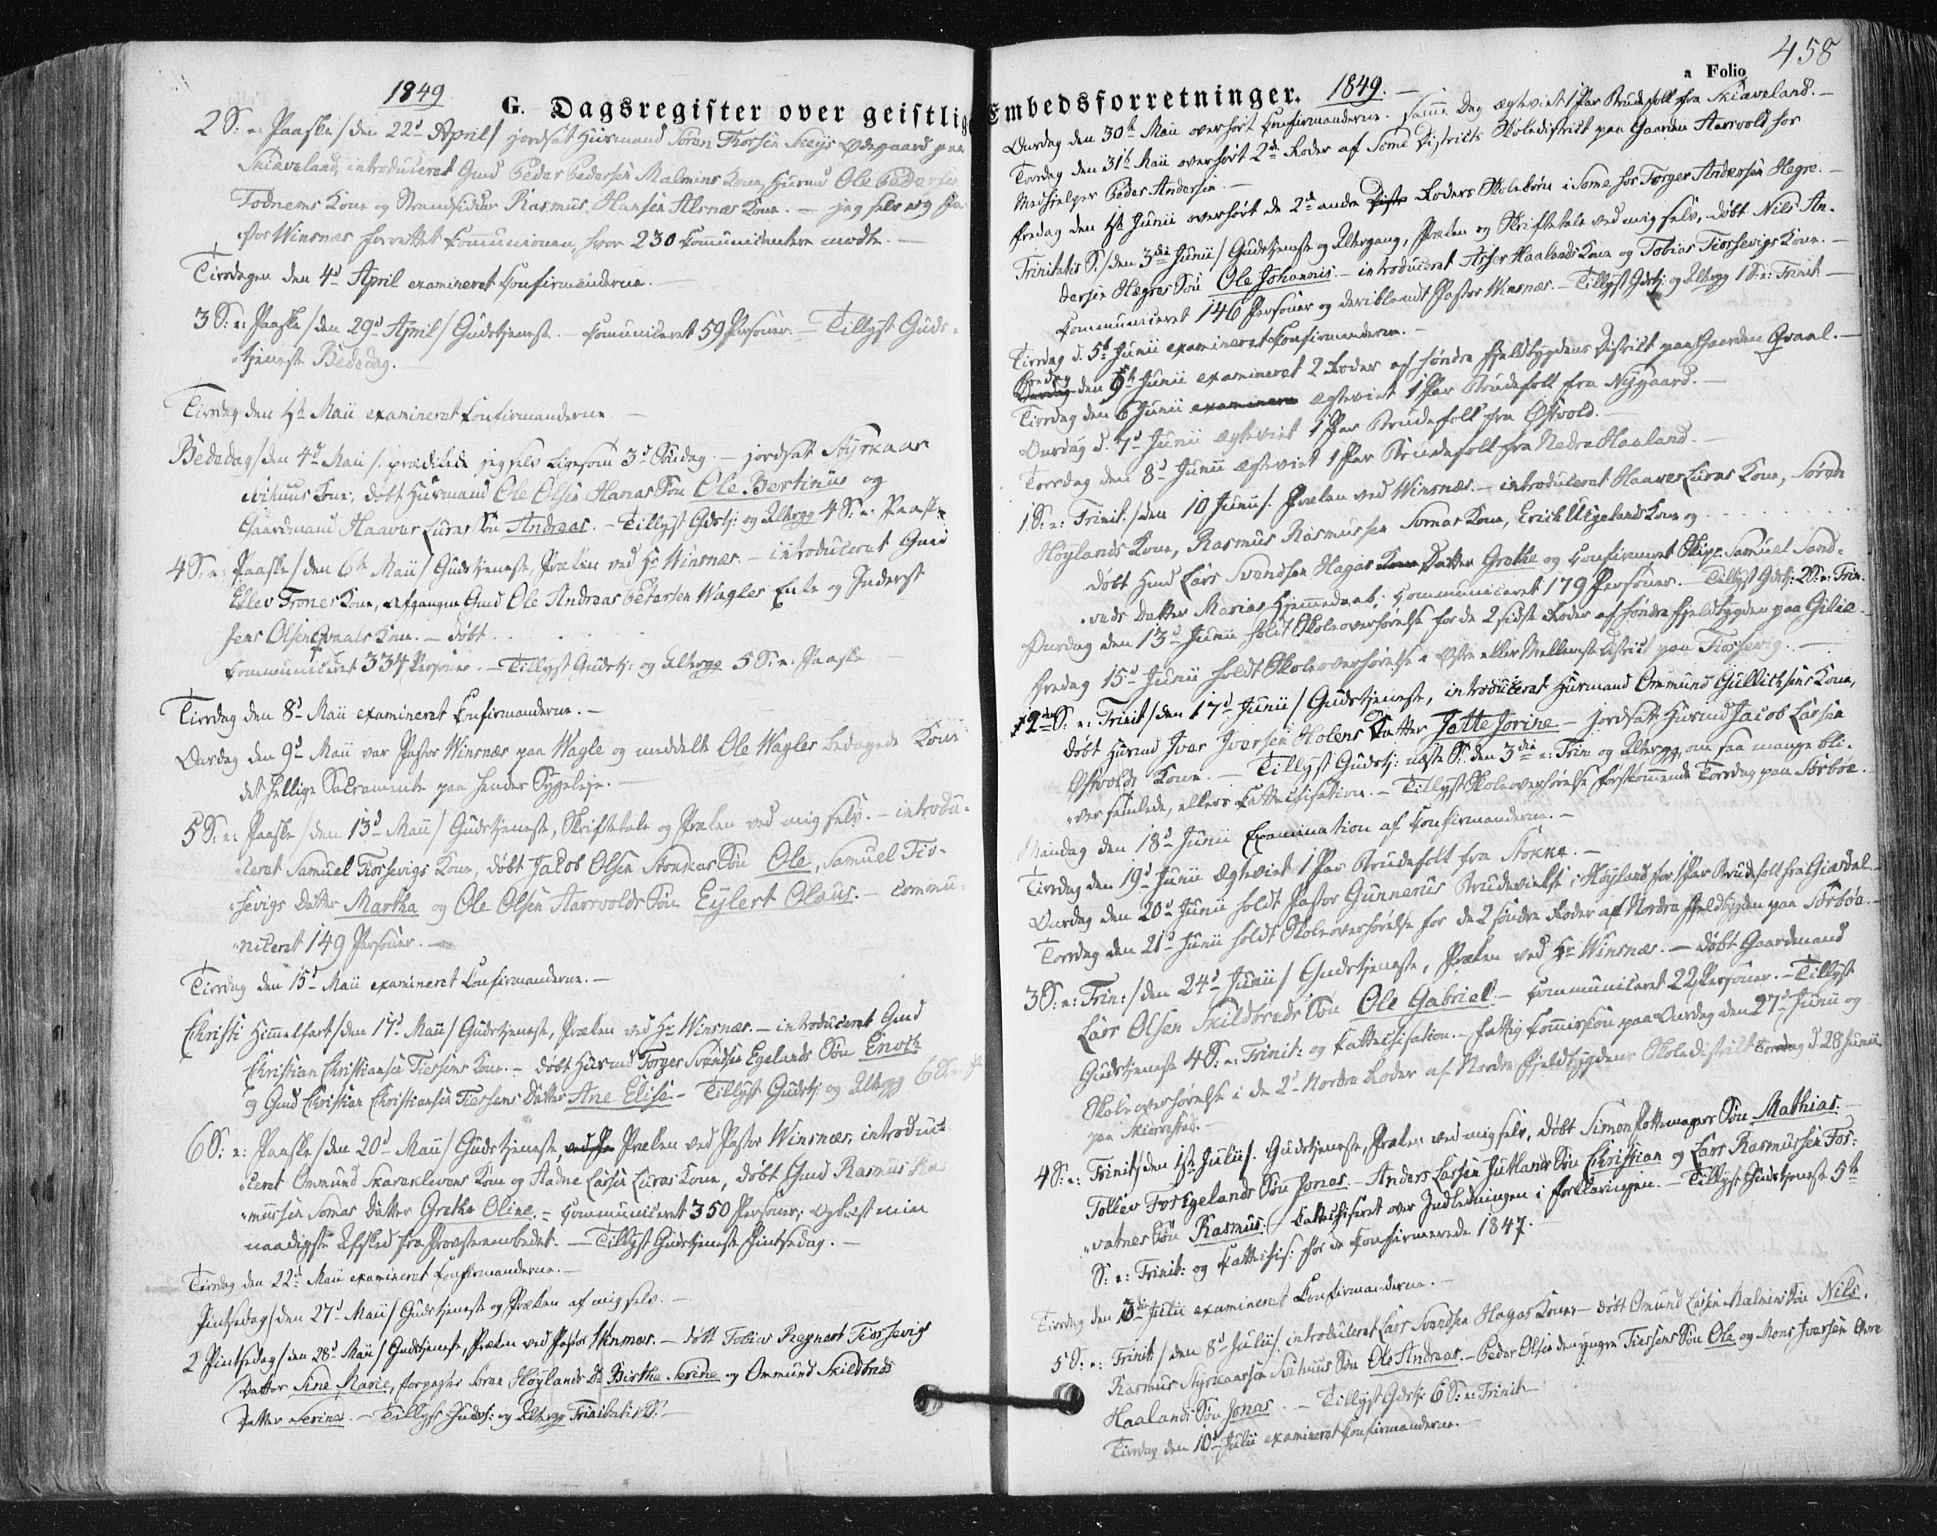 1849
G. Dagsregister over geistlig
2 S: e: Paaske / den 22d April / jordsat Huusmand Sören Thorsen Skeijs Ødegaard paa
Skiæveland, introduceret Gmd Peder Pedersen Malmins Kone, Huusmd Ole Peders
Todnems Kone og Strandsidder Rasmus Hansen Alsnæs Kone. — jeg selv og Pa-
stor Winsnæs forrettet Communionen, hvor 230 Communicantere mødte. —
Tirsdagen den 4d April examineret Confirmanderne. —
3 S: e: Paaske / den 29d April / Gudstjeneste. — Communiceret 59 Personer. — Tillyst Guds-
tjeneste Bededag. —
Tirsdag den 1ste Maii examineret Confirmanderne —
Bededag / den 4d Maii /. prædikede jeg selv ligesom 3d Søndag. — jordsat Styrkaar
Kone, døbt Huusmand Ole Olsen Hanas Søn Ole Bertinus og
Gaardmand Haavar Luras Søn Andreas. — Tillyst Gdstj: og Altergg 4 S: e: Paaske
4 S: e: Paaske / den 6te Maii / Gudstjeneste, Præken ved Hr Winsnæs. — introduceret Gmd
Ellev Trones Kone, Afgangne Gmd Ole Andreas Petersen Wagles Enke og Inderst
Jens Olsen Qvaals Kone. — døbt . . . .
Communiceret 334 Personer. — Tillyst Gudstj: og Altergg 5 S: e. Paaske —
Tirsdag den 8d Maii examineret Confirmanderne. —
Onsdag den 9d Maii var Pastor Winsnæs paa Wagle og meddelte Ole Wagles bedagede Kone
det hellige Sacramente paa hendes Sygeleje. —
5 S: e: Paaske / den 13d Maii / Gudstjeneste, Skriftetale og Præken ved mig selv. — introdu-
ceret Samuel Tiorsevigs Kone, døbt Jakob Olsen Stokkas Søn Ole, Samuel Tior-
sevigs Datter Martha og Ole Olsen Aarrvolds Søn Eylert Olaus. — Commu-
niceret 149 Personer. —
Tirsdag den 15d Maii examineret Confirmanderne. —
Christi Himmelfart / den 17d Maii / Gudstjeneste, Præken ved Hr Winsnæs. — introduceret Gmd
Christian Christiansen Tiessems Kone. — døbt Huusmd Torger Svendsen Egelands Søn Enoch
og Gmd Christian Christiansen Tiessems Datter Ane Elise. — Tillyst Gudstj: og Altergg 6 S: e: P
6 S: e: Paaske / den 20d Maii / Gudstjeneste, Præken ved Pastor Winsnæs, introdu-
ceret Ommund Skaraklevens Kone og Aadne Larsen Luras Kone, døbt Gmd Rasmus Ras-
mussen Somas Datter Grethe Oline. — Communiceret 350 Personer; Oplæst min
naadigste Afsked fra Provsteembedet. — Tillyst Gudstjeneste Pintsedag. —
Tirsdag den 22d Maii examineret Confirmanderne. —
Pintsedag / den 27d Maii / Gudstjeneste og Præken af mig selv. —
2 Pintsedag / den 28d Maii / Gudstjeneste, Præken ved Pastor Winsnæs. — døbt Tobias Regnert Tiorsevigs
Datter Sine Marie, forpagter Sören Høylands Dr Birthe Serine og Ommund Skildbreds
Datter Serina. — Tillyst Gudstj: og Altergg Trinitatis S: —
Embedsforretninger.
1849. —
a Folio
458
Onsdag den 30te Maii overhørt Confirmanderne. Samme Dag ægteviet 1 Par Brudefolk fra Skiæveland. —
Torsdag den 31te Maii overhørt 2de Roder af Some Districts Skoledistrict paa Gaarden Aarrvold hos
Medhjelper Peder Andersen. —
Fredag den 1ste Junii overhørt de 2de andre Roders Skolebørn i Some hos Torger Andersen Hegre. —
Trinitatis S. / den 3die Junii / Gudstjeneste og Altergang, Præken og Skriftetale ved mig selv, døbt Nils An-
dersen Hægres Søn Ole Johannes. — introduceret Asser Haalands Kone og Tobias Tiorsevigs Kone. —
Communiceret 146 Personer og deriblandt Pastor Winsnæs. — Tillyst Gdstj: og Altergg 1 S: e: Trinit —
Tirsdag d. 5te Junii examineret Confirmanderne. —
den Junii examineret 2 Roder af søndre Fjeldbygdens District paa Gaarden Qvaal. —
Tirsdag den 6 Junii examinere ægteviet 1 Par Brudefolk fra Nygaard. —
Onsdag d. 7d Junii ægteviet 1 Par Brudefolk fra Østvold. —
Torsdag den 8d Junii ægteviet 1 Par Brudefolk fra Nedre Haaland. —
1 S: e: Trinit. / den 10 Junii /. Præken ved Winsnæs. — introduceret Haaver Luras Kone, Sören
Høylands Kone, Rasmus Rasmussen Somas Kone, Erich Utgelands Kone og
døbt Hmd Lars Svendsen Hagas Datter Grethe og Confirmeret Samuel Sand-
veds Datter Marias Hjemmedaab; Communiceret 179 Personer. — Tillyst Gdstj: 2 S: e: Trin.
Onsdag den 13d Junii holdt Skoleoverhørelse for de 2 sidste Roder af søndre Fjeldbygden paa
Fredag 15d Junii holdt Skoleoverhørelse i Østre eller Mellemste District paa Tiorsevig. —
2 S: e: Trinit / den 17d Junii / Gudstjeneste, introduceret Huusmand Ommund Gullichsens Kone,
døbt Huusmd Ivar Ivarsen Holens Datter Jette Jorine — jordsat Huusmd Jacob Larsen
Østvolds Kone. — Tillyst Gudstj: næste S: den 3die e: Trin og Altergg, om saa mange bli-
ver samlede, ellers Cattechisation. — Tillyst Skoleoverhørelse førstkommende Torsdag paa Sørbøe.
Mandag den 18d Junii Examination af Confirmanderne. —
Tirsdag den 19d Junii ægteviet 1 Par Brudefolk fra Stokke. —
Onsdag den 20d Junii holdt Pastor Gunnerus Brudevielse i Høyland for 1 Par Brudefolk fra Giædal —
Torsdag den 21d Junii holdt Skoleoverhørelse for de 2 søndre Roder af Nordre Fjeldbygden paa Sørbøe. —
3 S: e: Trin: / den 24d Junii / Gudstjeneste, Præken ved Hr Winsnæs. — døbt Gaardmand
Lars Olsen Skildbreds Søn Ole Gabriel. — Communiceret 22 Personer. — Tillyst
Gudstjeneste 4 S: e: Trinit: og Cattechisation. — Fattig Commission paa Onsdag den 27d Junii og
Skoleoverhørelse i de 2d Nordre Roder af Nordre Fjeldbygdens Skoledistrict Torsdag d 28 Junii
paa Skiørestad. —
4 S: e: Trinit / den 1ste Julii /. Gudstjeneste, Præken ved mig selv, døbt Simon Pottemagers Søn Mathias. —
Tollev Fos Egelands Søn Jonas. — Anders Larsen Jutlands Søn Christian og Lars Rasmussen Fos-
vatnes Søn Rasmus. — Cattechiseret over Indledningen i Forklaringen. — Tillyst Gudstjeneste 5te
S: e: Trinit: og Cattechis: for de Confirmerede 1847. —
Tirsdag den 3die Julii examineret Confirmanderne. —
5 S: e: Trinit / den 8d Julii /. introduceret Lars Svendsen Hagas Kone, — døbt Omund Larsen Malmins Søn Nils.
Rasmus Styrkaarsen Søn Ole Andreas. — Peder Olsen den yngre Tiessems Søn Ole og Mons Ivarsen Øvre
Haalands Søn Jonas. — Tillyst Gdstj: 6 S: e: Trinit —
Tirsdag den 10d Julii examineret Confirmanderne. —